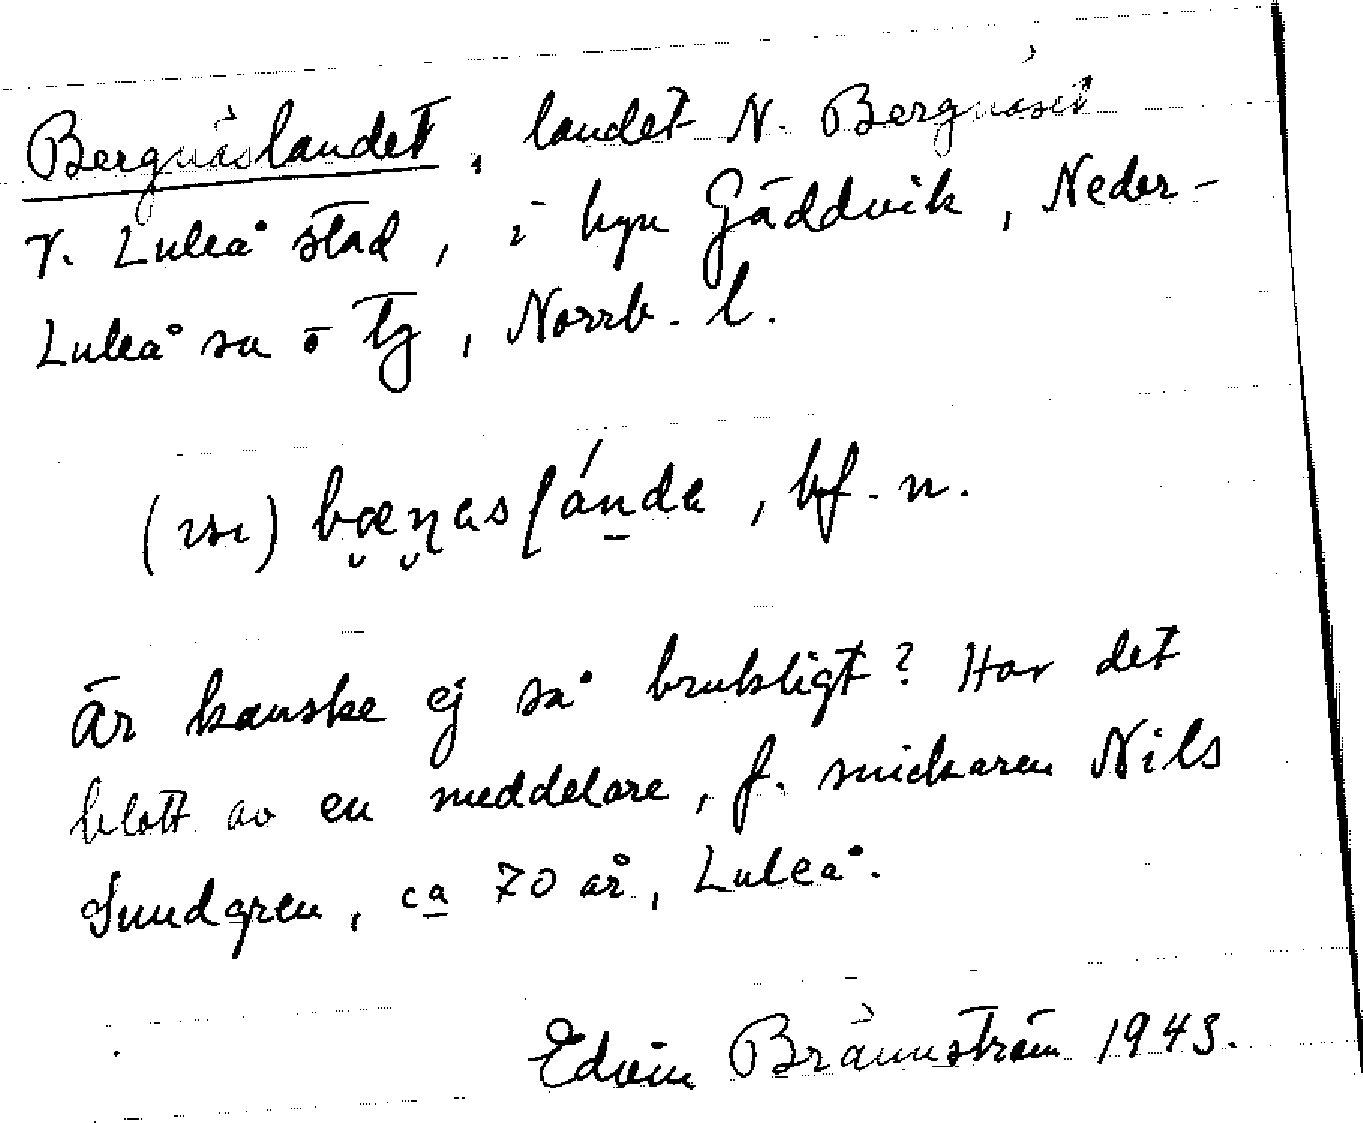 Bergnäslandet, landet N. Bergnäset
r. Luleå stad, i byn Gäddvik, Neder-
Luleå sn o tg, Norrb. l.
bf. n.
Är kanske ej så brukligt? Har det
blott av en meddelare, f. snickaren Nils
Sundgren, ca 70 år, Luleå.
Edvin Brännström 1943.